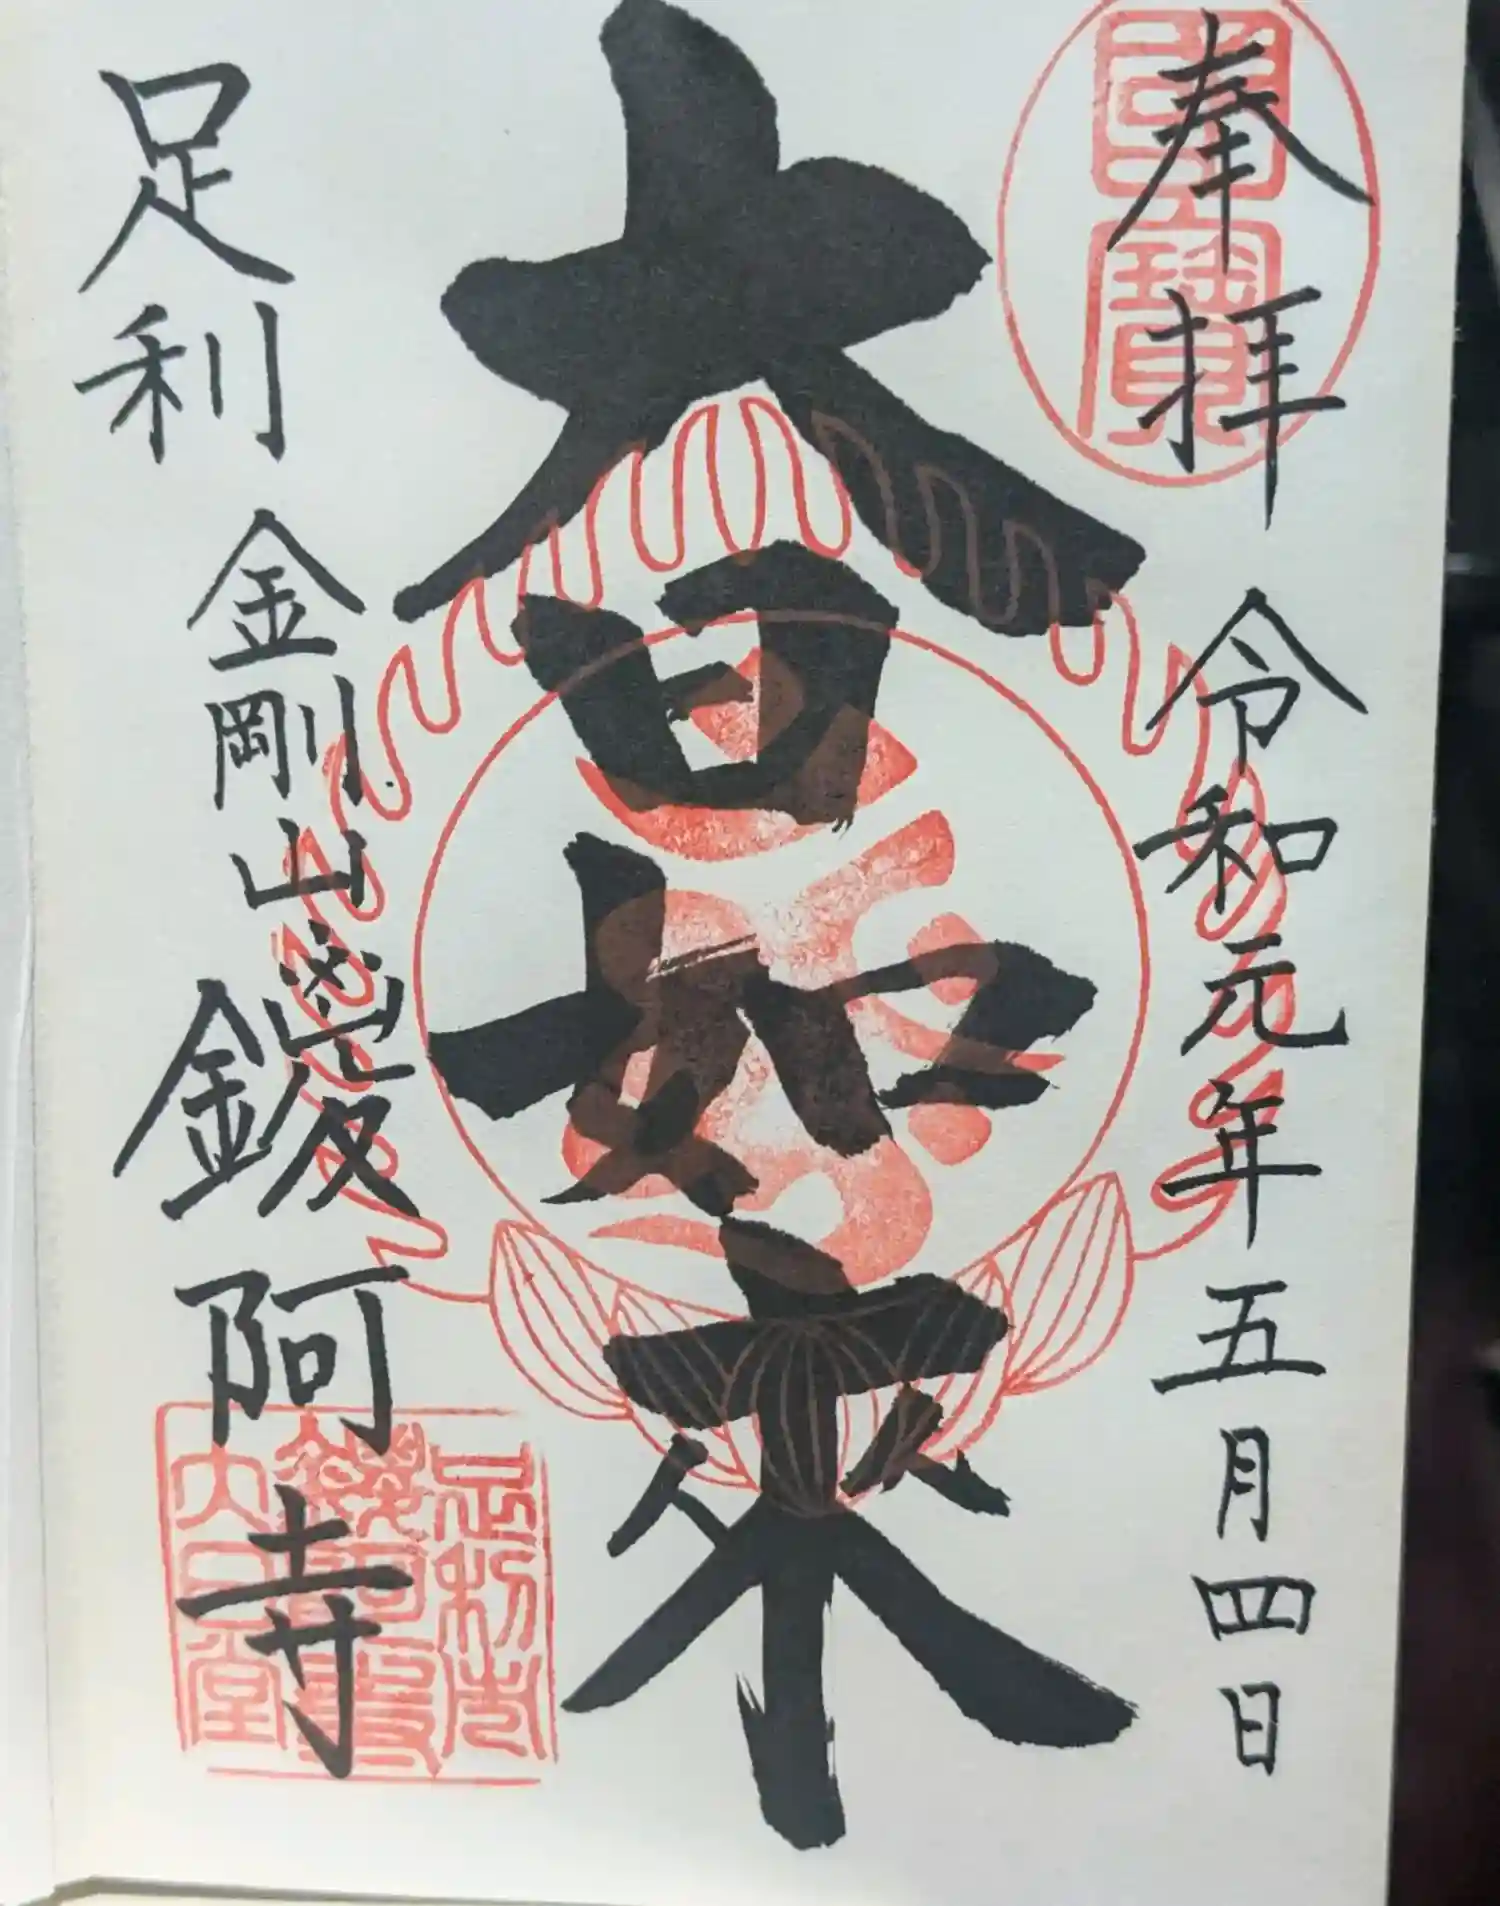 奉拝
令和元年五月四日
國寳
大日如來
足利
金剛山
鑁阿寺
足利市
鑁阿寺
大日堂